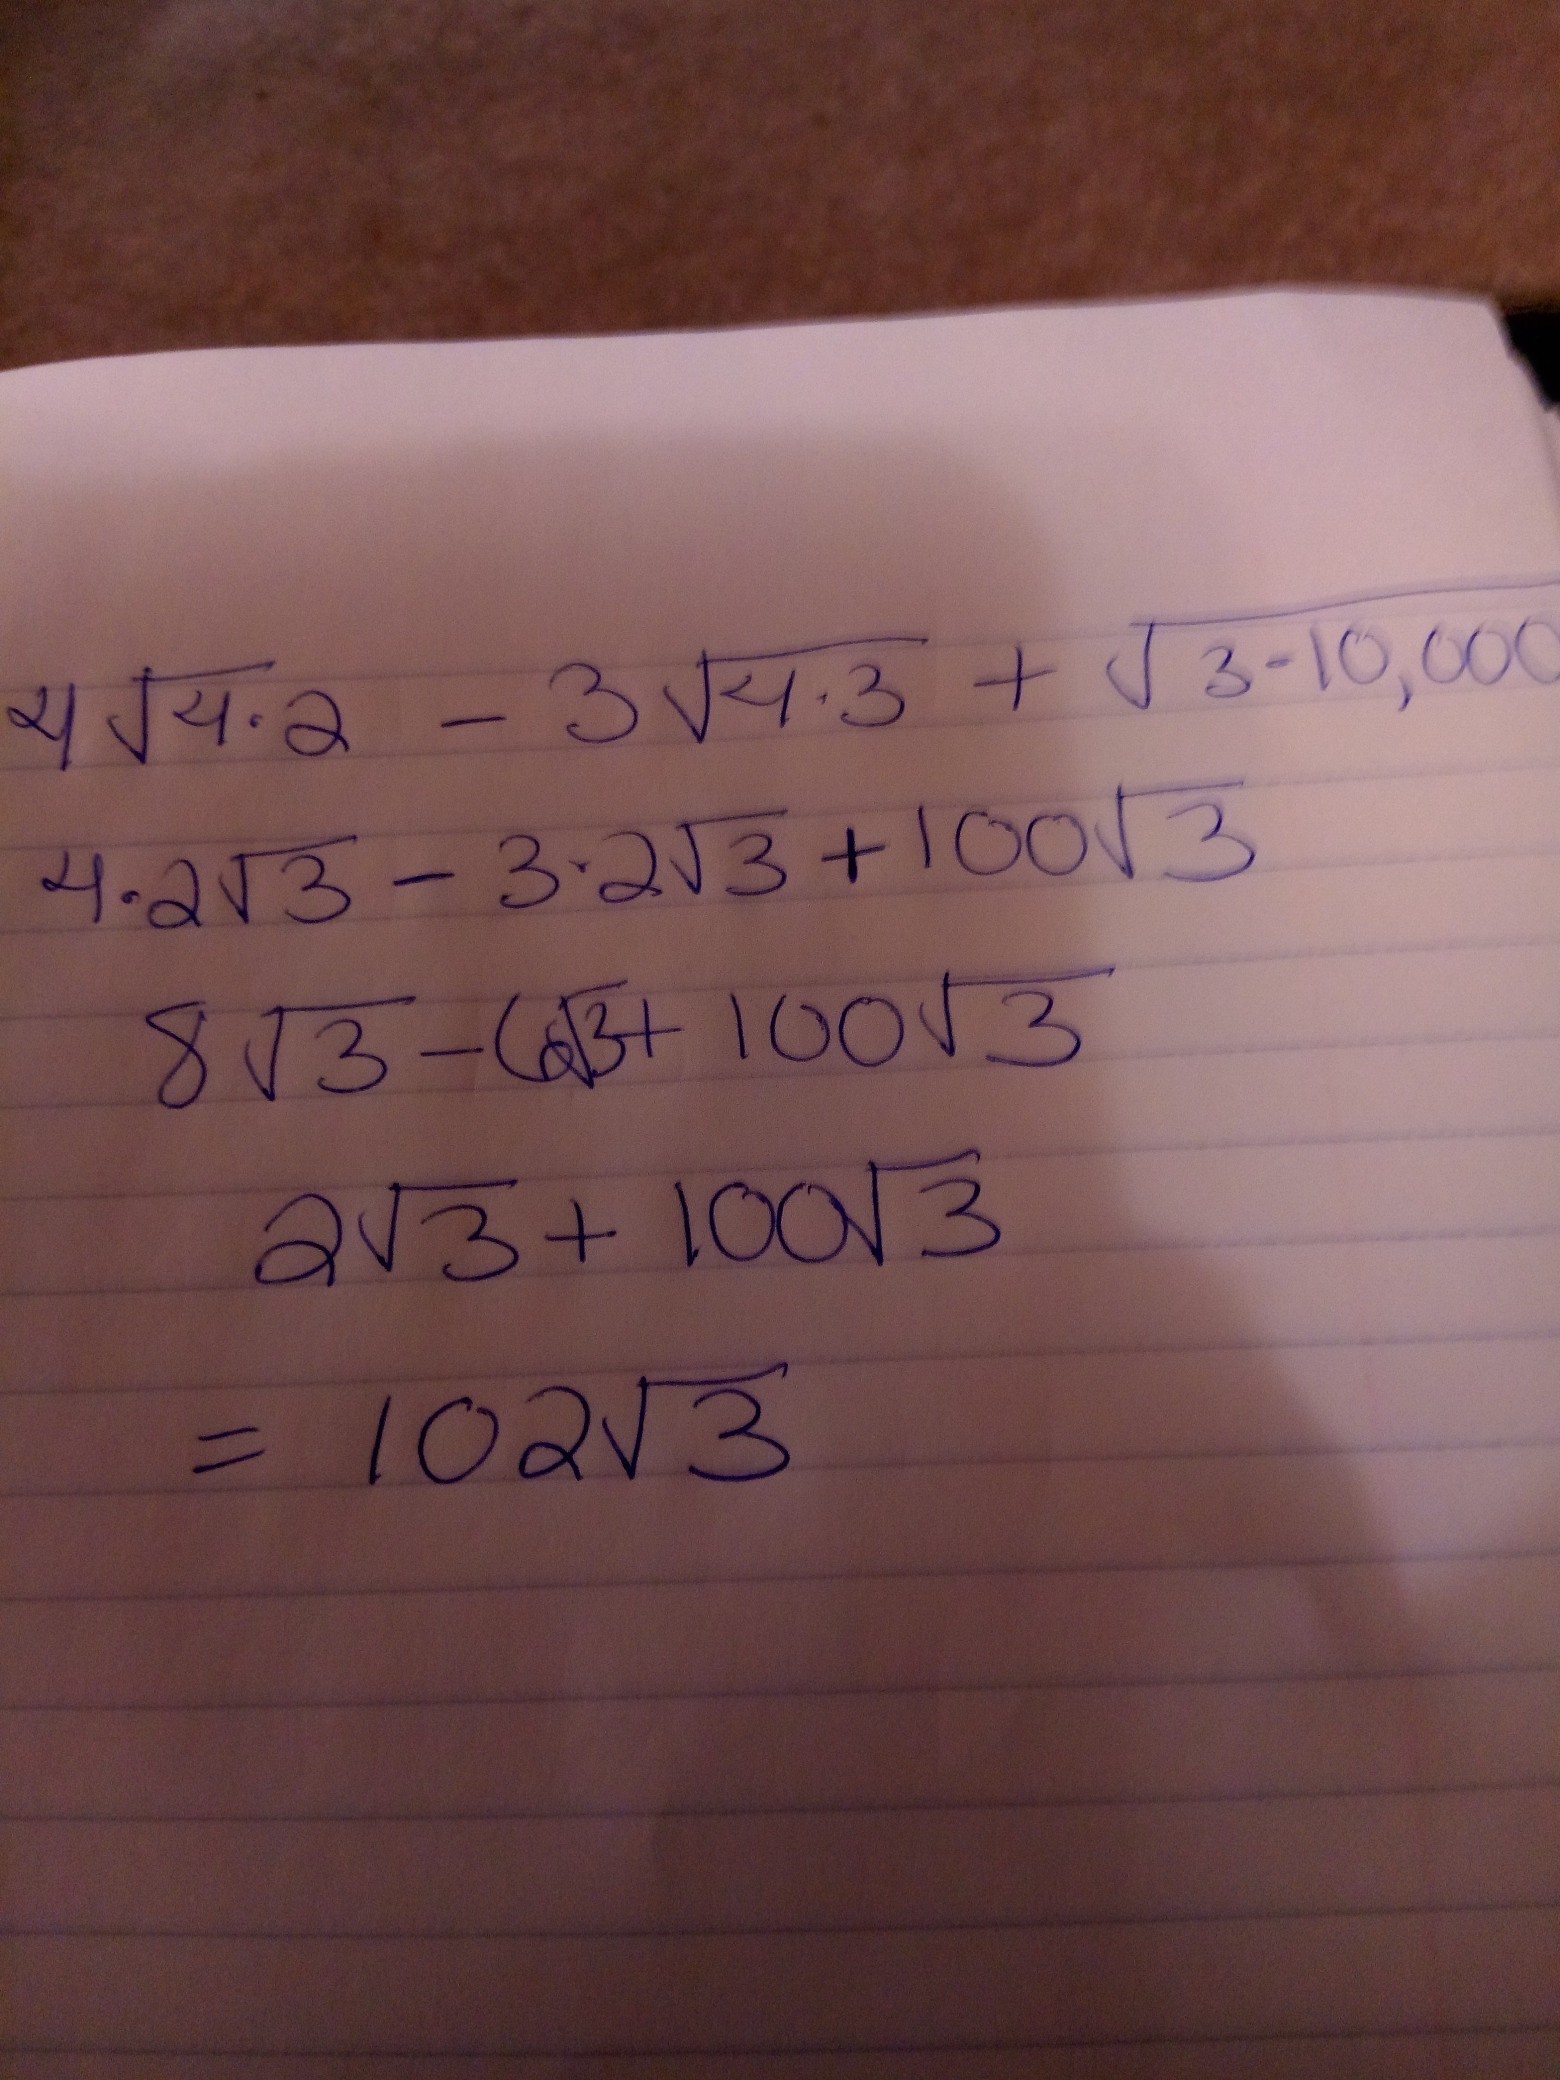 4√4·2 - 3√4·3 + √3·10,000
4·2√3 - 3·2√3 + 100√3
8√3 - 6√3 + 100√3
2√3 + 100√3
= 102√3